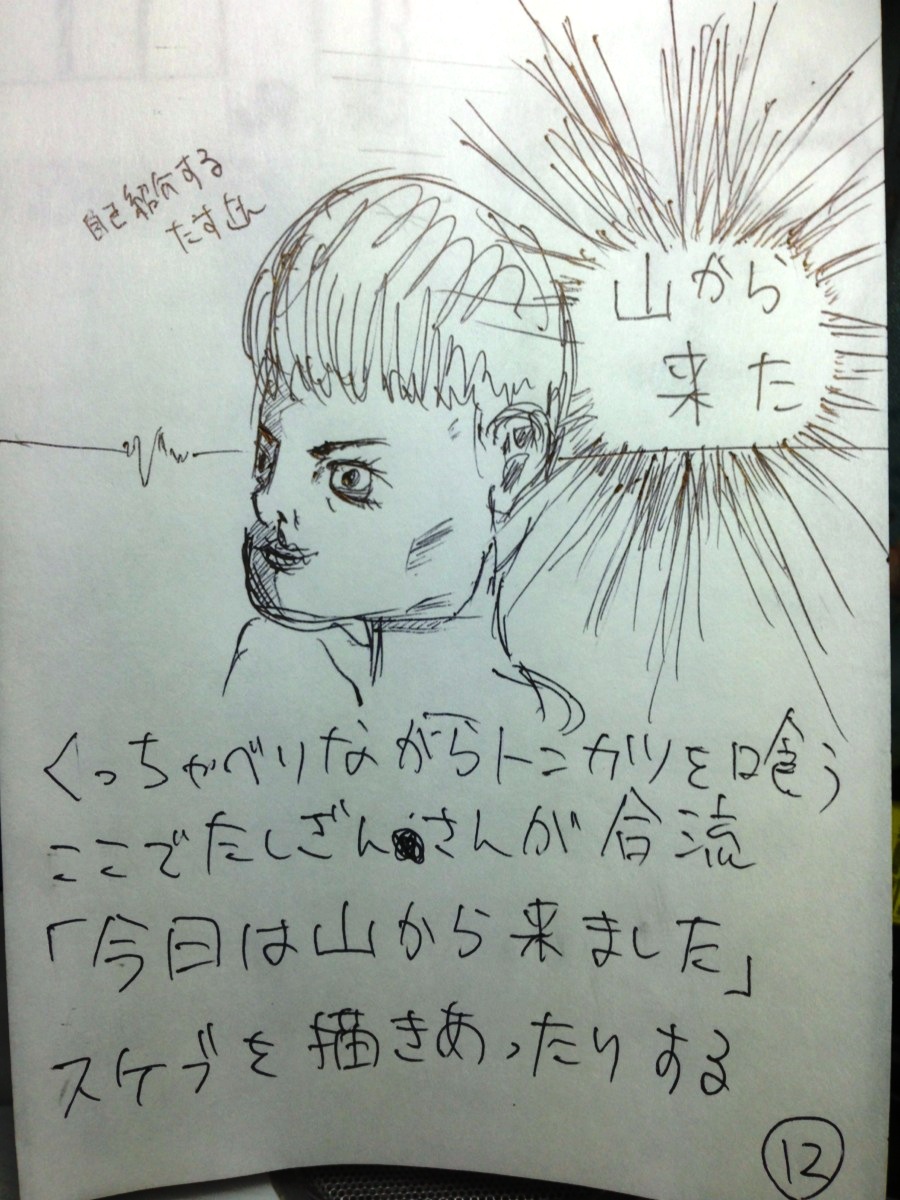 自己紹介する
たすざん
山から
来た
くっちゃべりながらトンカツを喰う
ここでたしざんさんが合流
「今日は山から来ました」
スケブを描きあったりする
12